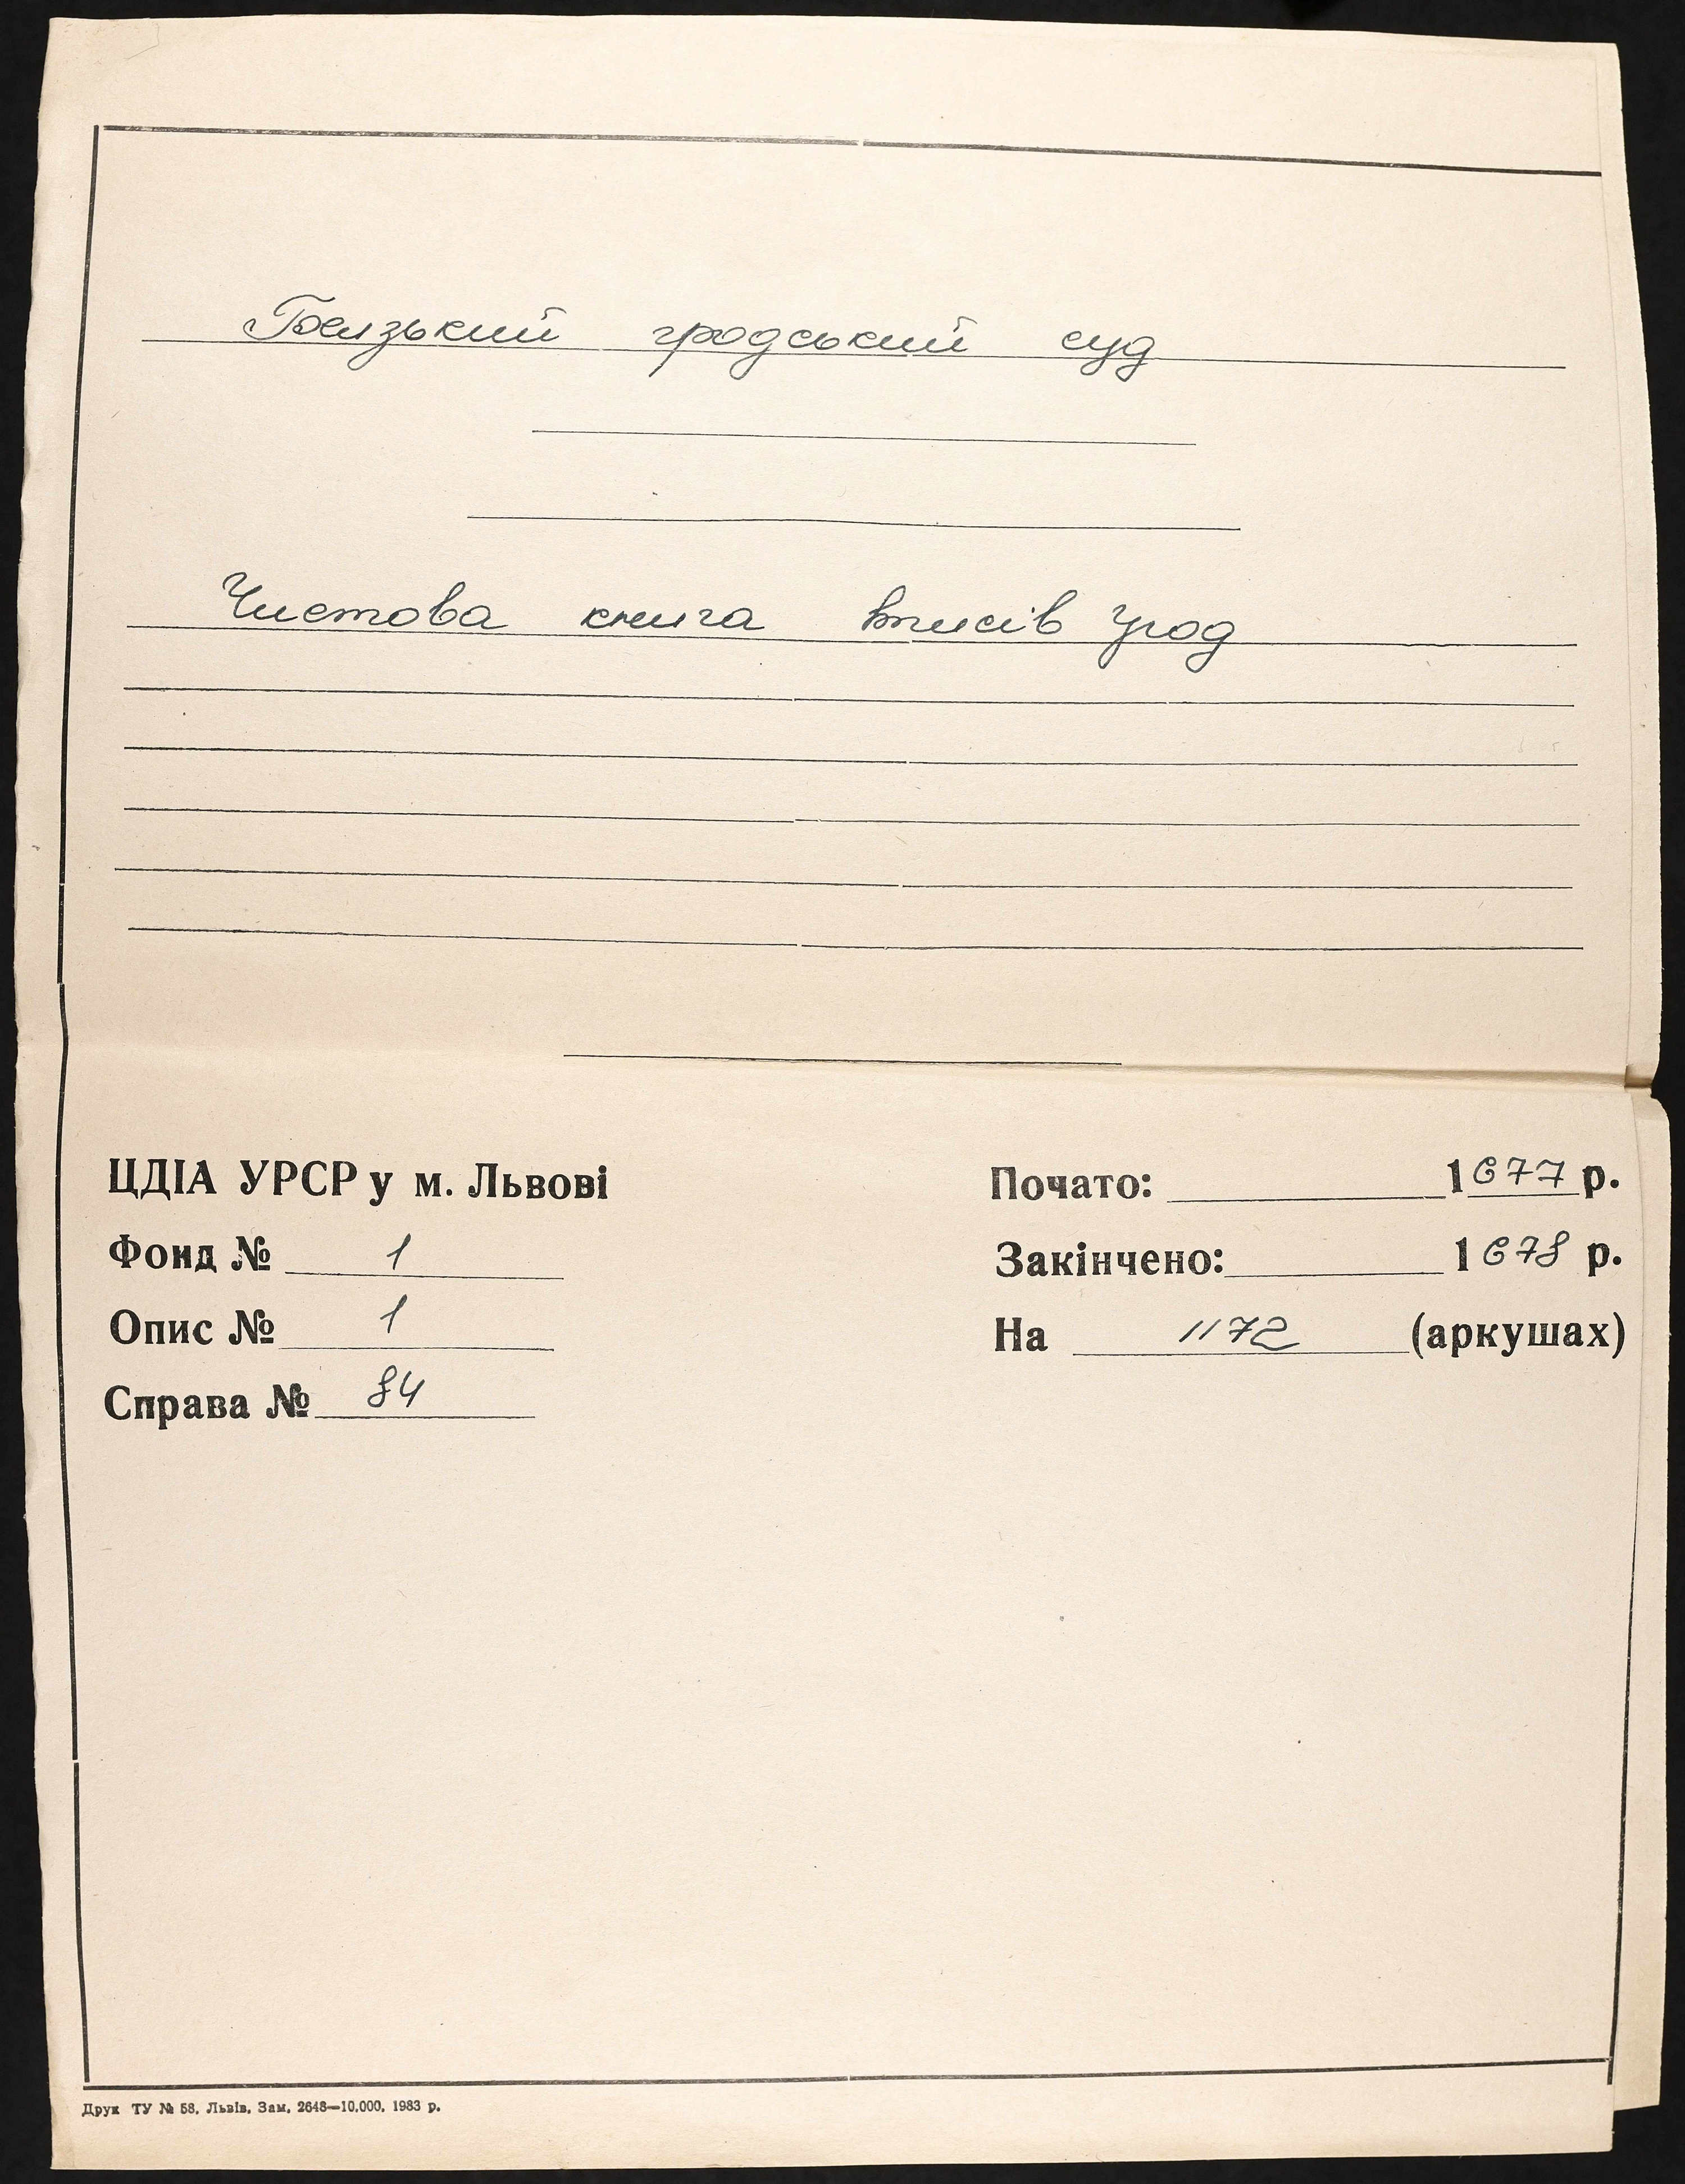 Белзький гродський суд
Чистова книга вписів угод
ЦДІА УРСР у м. Львові
Фонд № 1
Опис № 1
Справа № 84
Почато: 1677 р.
Закінчено: 1678 р.
На 1172 (аркушах)
Друк ТУ № 58. Львів. Зам. 2648—10.000. 1983 р.